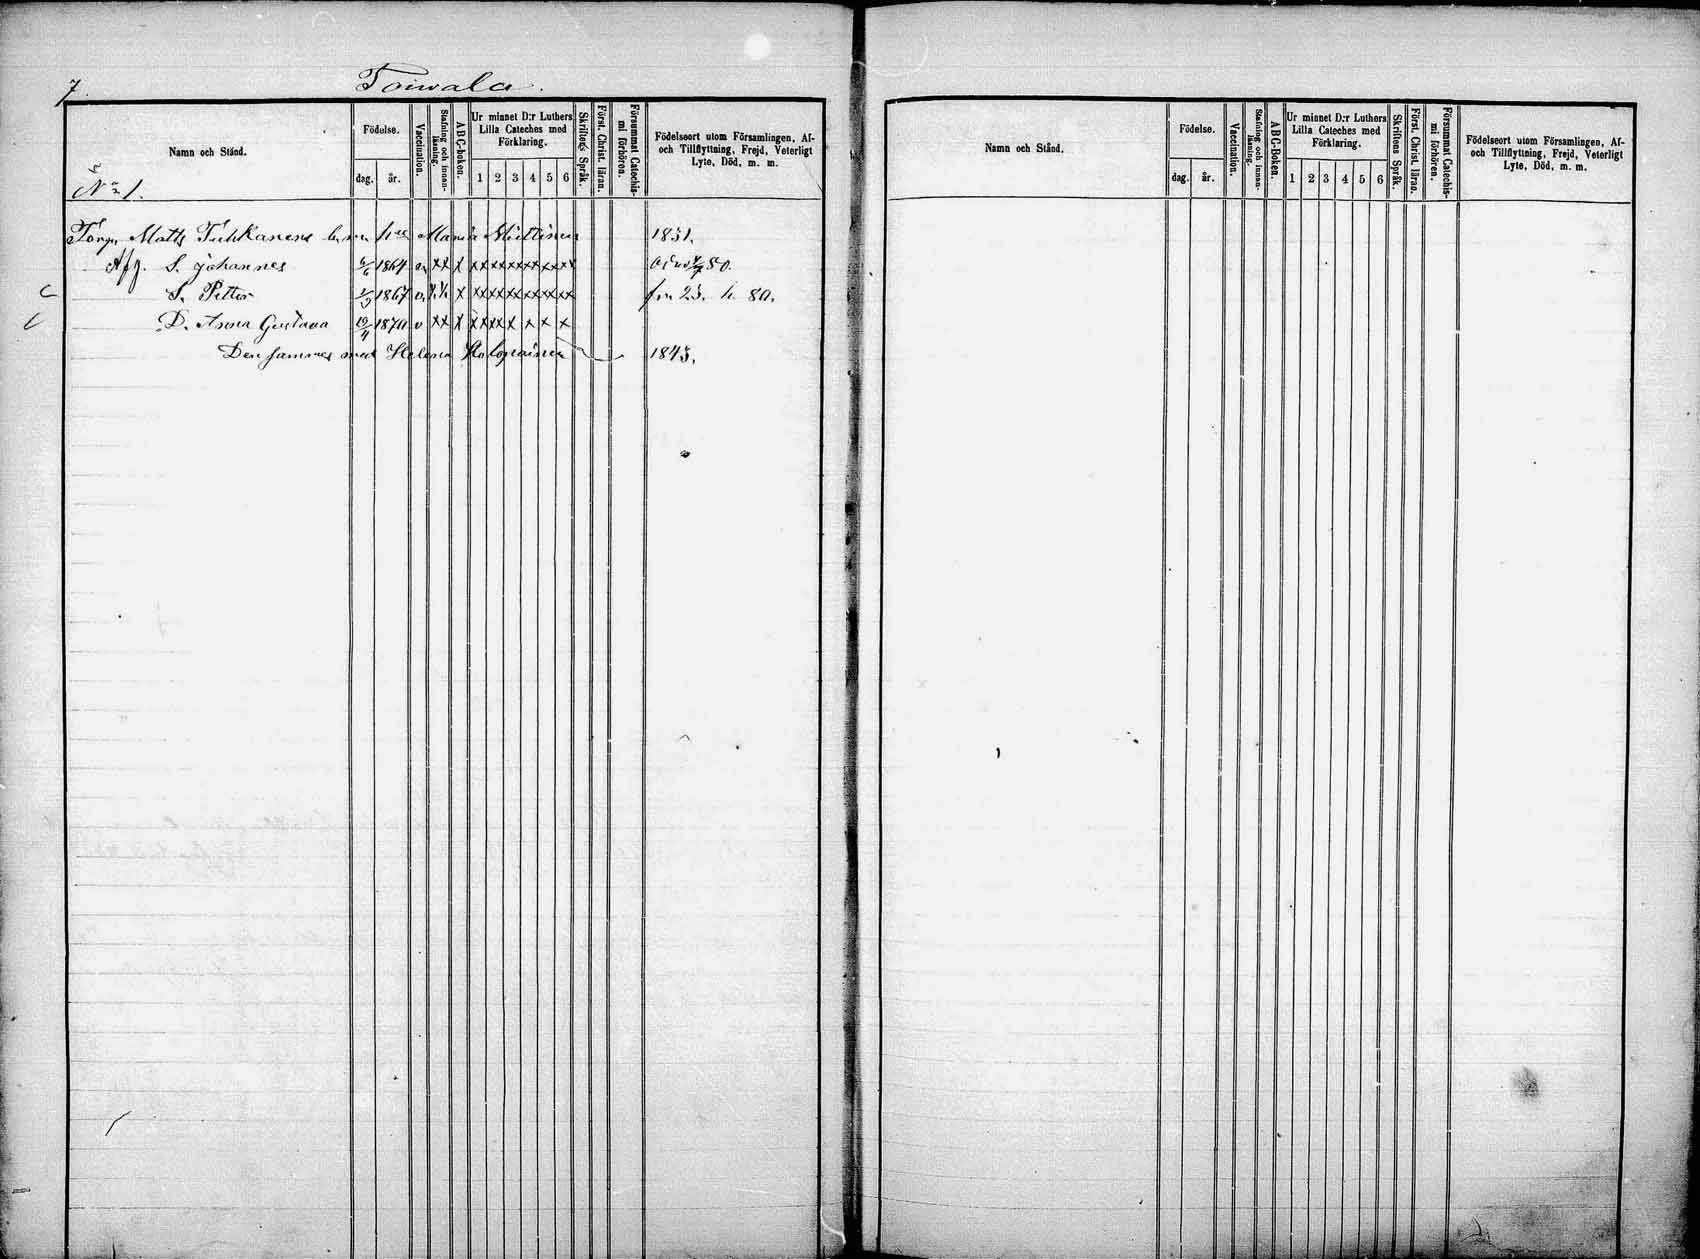 7.
Toiwala.
Namn och Stånd.
Födelse.
dag.
år.
Vaccination.
Stafning och innan-
läsning.
ABC-boken.
Ur minnet D:r Luthers
Lilla Cateches med
Förklaring.
1 2 3 4 5 6
Skriftens Språk.
Först. Christ. läran.
Försummat Catechis-
mi förhören.
Födelseort utom Församlingen, Af-
och Tillflyttning, Frejd, Veterligt
Lyte, Död, m. m.
No 1.
Torp. Matts Tuhkanens barn m. h. Maria Miettinen 1831.
Afg. S. Johannes 6/6 1864 v. xx x xxxxxxxxxxx 50.
S. Petter 1/3 1867 v. x xxxxxxxxxxx 23. 80.
D. Anna Gustava 19/4 1870 v xx x xxxx x x x x
Den sammes med Helena 1843.
Namn och Stånd.
Födelse.
dag.
år.
Vaccination.
Stafning och innan-
läsning.
ABC-Boken.
Ur minnet D:r Luthers
Lilla Cateches med
Förklaring.
1 2 3 4 5 6
Skriftens Språk.
Först. Christ. läran.
Försummat Catechis-
mi förhören.
Födelseort utom Församlingen, Af-
och Tillflyttning, Frejd, Veterligt
Lyte, Död, m. m.